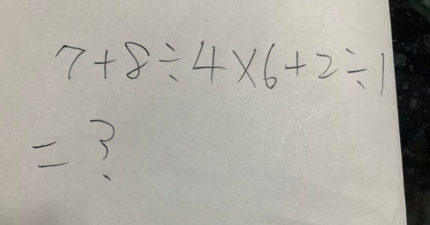 7+8÷4×6+2÷1
=?